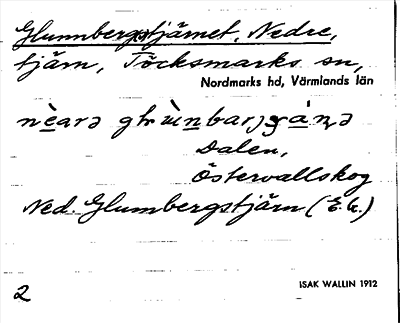 Glumbergstjärnet, Nedre,
tjärn, Töcksmarks sn,
Nordmarks hd, Värmlands län
Dalen,
Östervallskog
Ned. Glumbergstjärn (E.k.)
2
ISAK WALLIN 1912